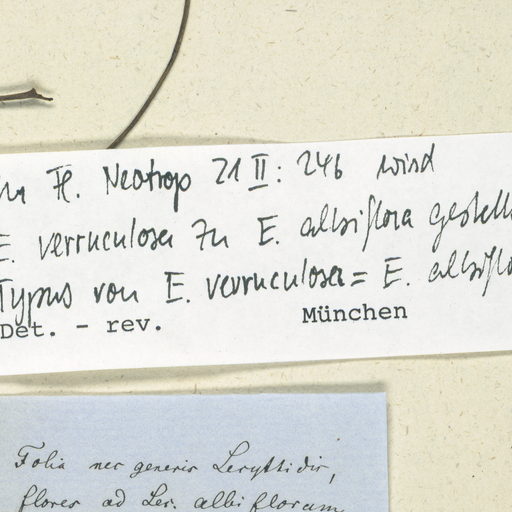 In Fl. Neotrop 21 II: 246 wird
E. verruculosa zu E. albiflora gestell
Typus von E. verruculosa = E. albiflo
Det. - rev. München
Folia nec generis
flores ad Ler. albifloram